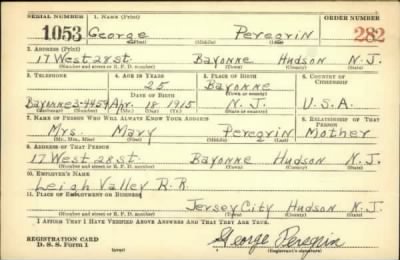 SERIAL NUMBER 1. NAME (Print) ORDER NUMBER
1053 George Peregrin 282
(First) (Middle) (Last)
2. ADDRESS (Print)
17 West 28 st. Bayonne Hudson N.J.
(Number and street or R. F. D. number) (Town) (County) (State)
3. TELEPHONE 4. AGE IN YEARS 5. PLACE OF BIRTH 6. COUNTRY OF CITIZENSHIP
25 Bayonne
DATE OF BIRTH (Town or county)
Bayonne 3-4459 Apr. 18 1915 N.J. U.S.A.
(Exchange) (Number) (Mo.) (Day) (Yr.) (State or country)
7. NAME OF PERSON WHO WILL ALWAYS KNOW YOUR ADDRESS 8. RELATIONSHIP OF THAT PERSON
Mrs. Mary Peregrin Mother
(Mr., Mrs., Miss) (First) (Middle) (Last)
9. ADDRESS OF THAT PERSON
17 West 28 st. Bayonne Hudson N.J.
(Number and street or R. F. D. number) (Town) (County) (State)
10. EMPLOYER'S NAME
Leigh Valley R.R.
11. PLACE OF EMPLOYMENT OR BUSINESS
Jersey City Hudson N.J.
(Number and street or R. F. D. number) (Town) (County) (State)
I AFFIRM THAT I HAVE VERIFIED ABOVE ANSWERS AND THAT THEY ARE TRUE.
REGISTRATION CARD George Peregrin
D. S. S. Form 1 (over) (Registrant's signature)